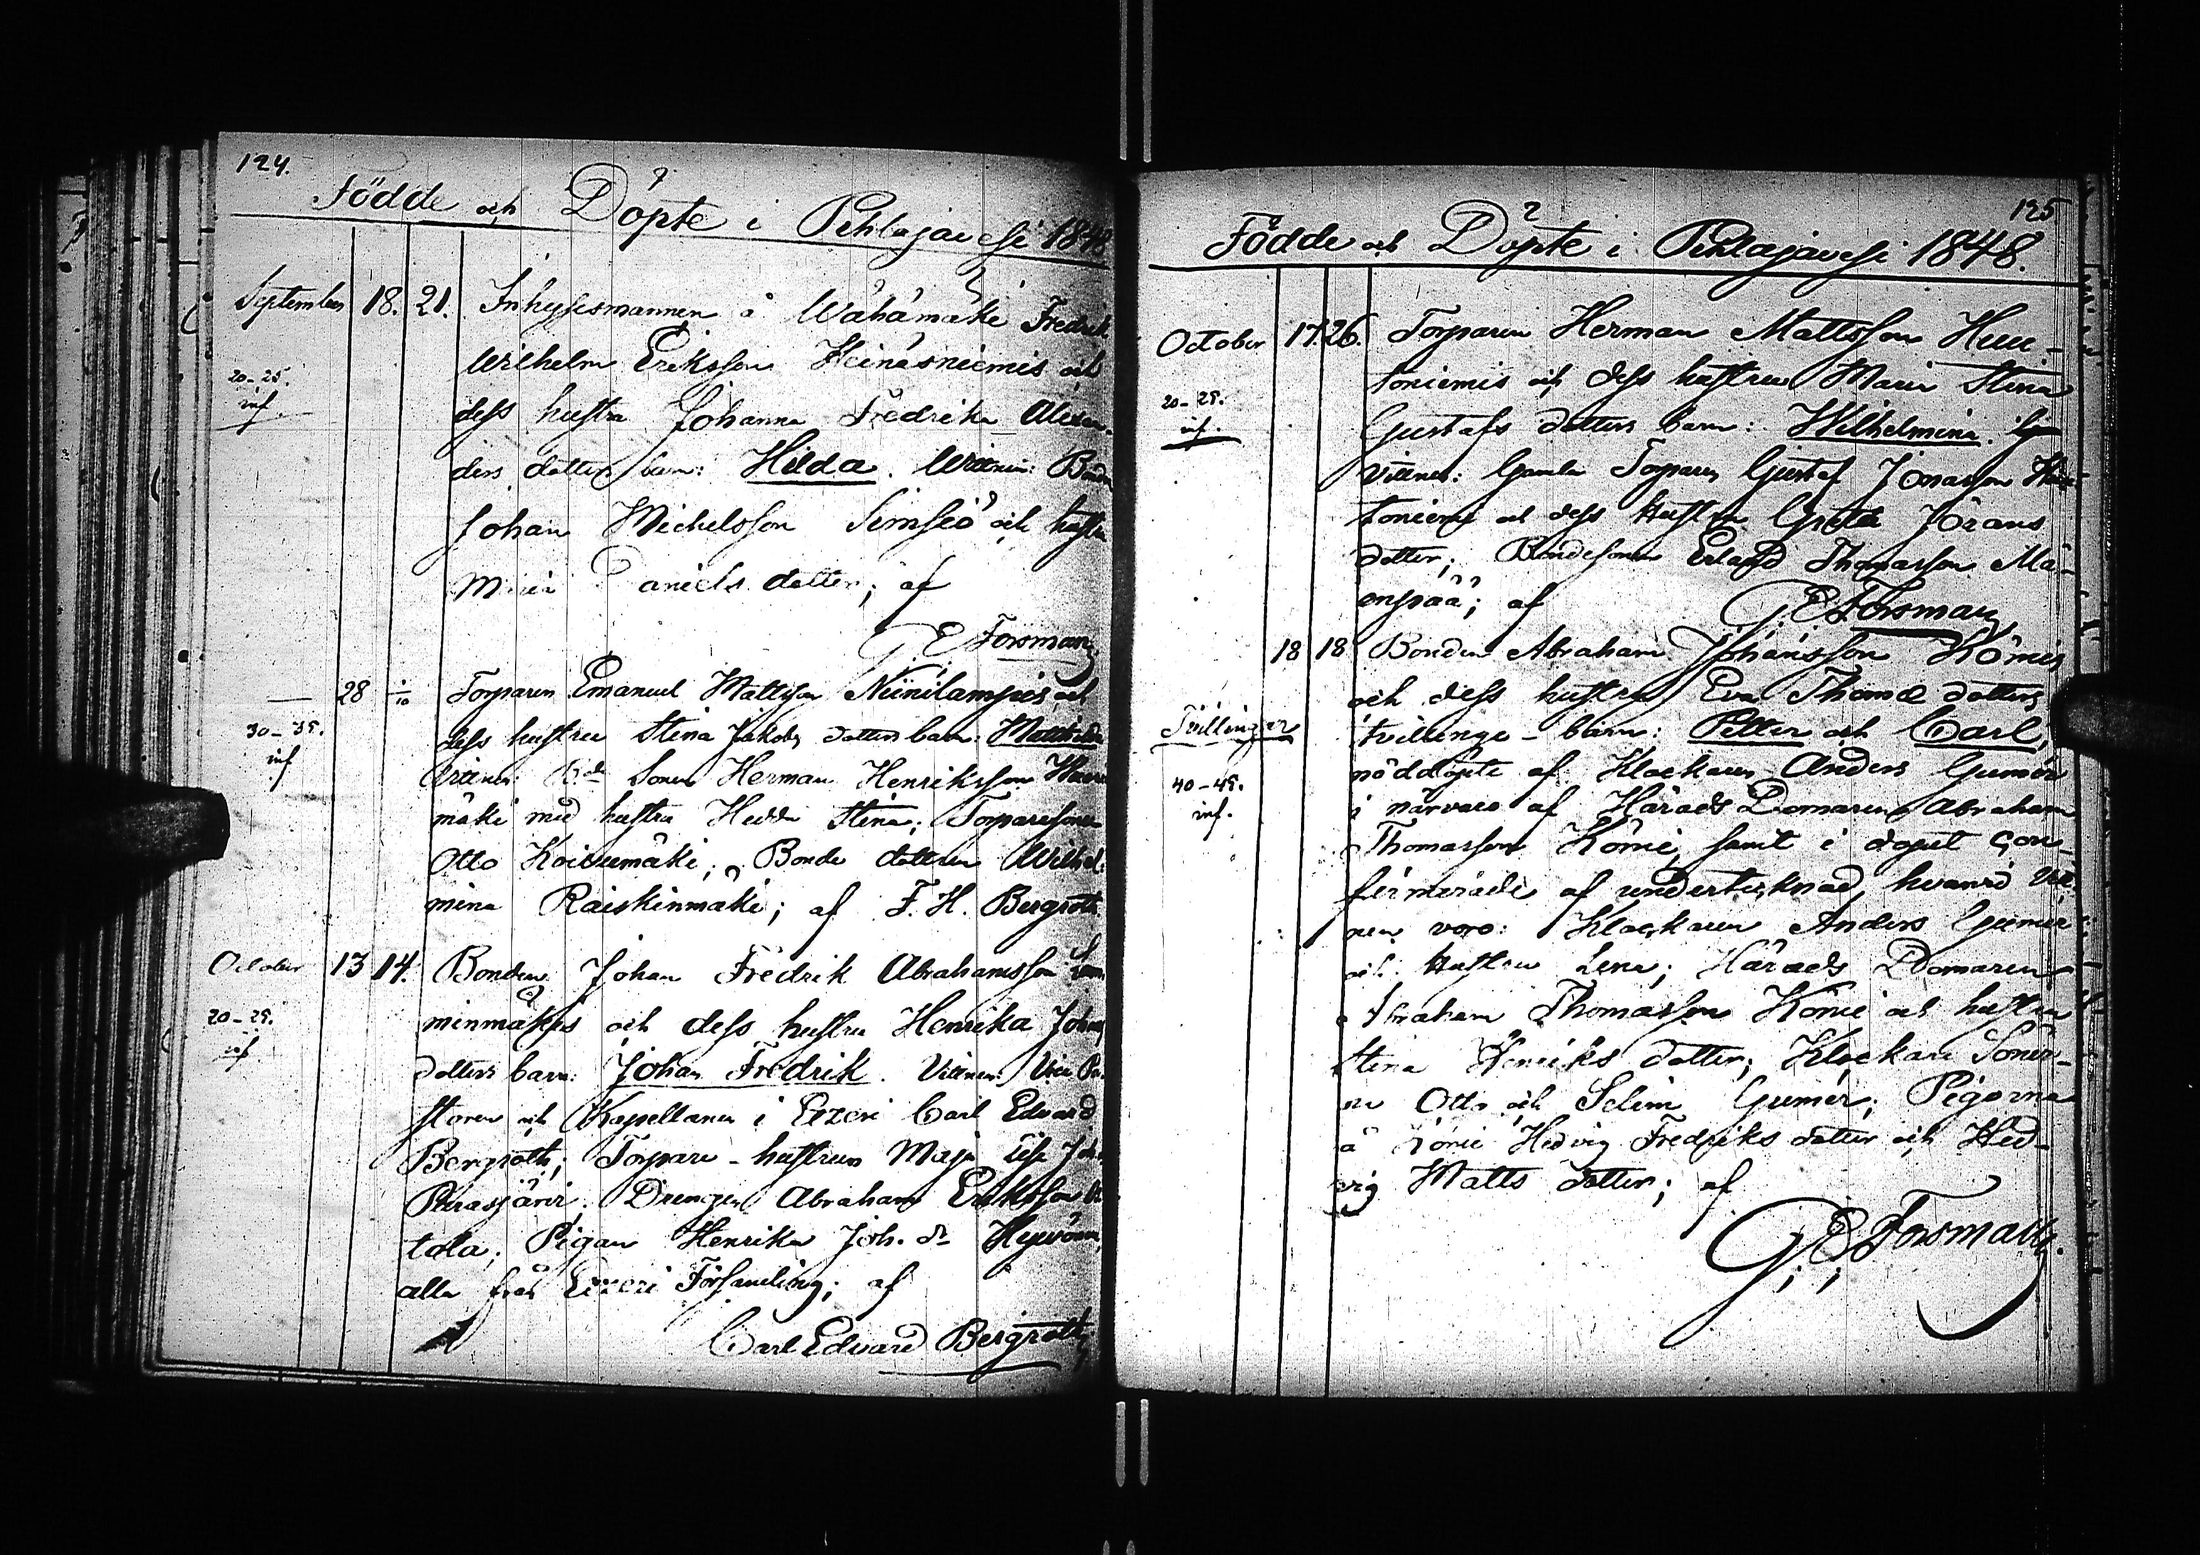 124.
Födde och Döpte i Pihlajavesi 1848
September 18. 21. Inhysesmannen å Wähämäki Fredrik
Wilhelm Eriksson Heinäsniemis och
20-25. inf.
dess hustru Johanna Fredrika Alexan-
ders dotters barn: Hilda. Wittnen: Bonden
Johan Michelsson Simsiö och hustru
Maria Daniels dotter; af
G. E. Forsman
28 1/10 Torparen Emanuel Mattsson Niinilampis och
30-35. inf
dess hustru Stina Jakobs dotters barn: Mathilda
Wittnen: Bde Sonen Herman Henriksson
mäki med hustru Hedda Stina; Torparesonen
Otto Koivumäki; Bonde dottren Wilhel-
mina Raiskinmäki; af F. H. Bergroth
October 13 14. Bonden Johan Fredrik Abrahamsson Lam-
20-25. inf
minmäkis och dess hustru Henrika Johans
dotters barn: Johan Fredrik. Vittnen: Vice Pa-
storen och Kapellanen i Etzeri Carl Edvard
Bergroth; Torpare-hustrun Maja Lisa Joh.
Peräsjärvi; Drengen Abraham Eriksson
tola; Pigan Henrika Joh. dr
alla från Etzeri Församling; af
Carl Edvard Bergroth
125
Födde och Döpte i Pihlajavesi 1848.
October 17. 26. Torparen Herman Mattsson Huu-
toniemis och dess hustru Maria Stina
20-25. inf.
Gustafs dotters barn: Wilhelmina.
Vittnen: Gamla Torparen Gustaf Jonasson Huu-
toniemi och dess Hustru Greta Jörans
dotter; Bondesonen Erland Thomasson Mä-
enpää; af G. E. Forsman
18 18 Bonden Abraham Johansson Kömis
och dess hustru Eva Thomæ dotters
Tvillingar
tvillinge-barn: Petter och Carl,
40-45. inf.
nöddöpte af Klockaren Anders Gumér
i närvaro af Härads Domaren Abraham
Thomasson Kömi, samt i dopet con-
firmerade af undertecknad, hvarvid Vitt-
nen voro: Klockaren Anders Gumér
och Hustru Lena; Härads Domaren
Abraham Thomasson Kömi och hustru
Stina Henriks dotter; Klockare Söner-
ne Otto och Selim Gumér; Pigorna
å Kömi Hedvig Fredriks dotter och Hed-
vig Matts dotter; af
G. E. Forsman.